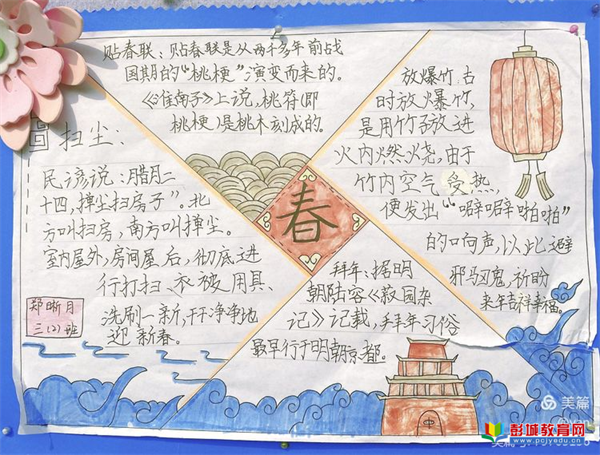 贴春联：贴春联是从两千多年前战
国期的“桃梗”演变而来的。
《淮南子》上说，桃符(即
桃梗)是桃木刻成的。
放爆竹古
时放爆竹，
是用竹子放进
火内燃烧，由于
竹内空气受热
便发出“噼噼啪啪”
的响声，以此避
邪马凶鬼，祈盼
来年吉祥幸福。
扫尘：
民谚说：腊月二
十四，掸尘扫房子”。北
方叫扫房，南方叫掸尘。
室内屋外，房间屋后，彻底进
行打扫、衣被用具、
洗刷一新，干干净净地
迎新春。
郑晰月
三(2)班
春
拜年：据明
朝陆容《菽园杂
记》记载，拜年习俗
最早行于明朝京都。
美篇
彭城教育网
www.pcjyedu.cn